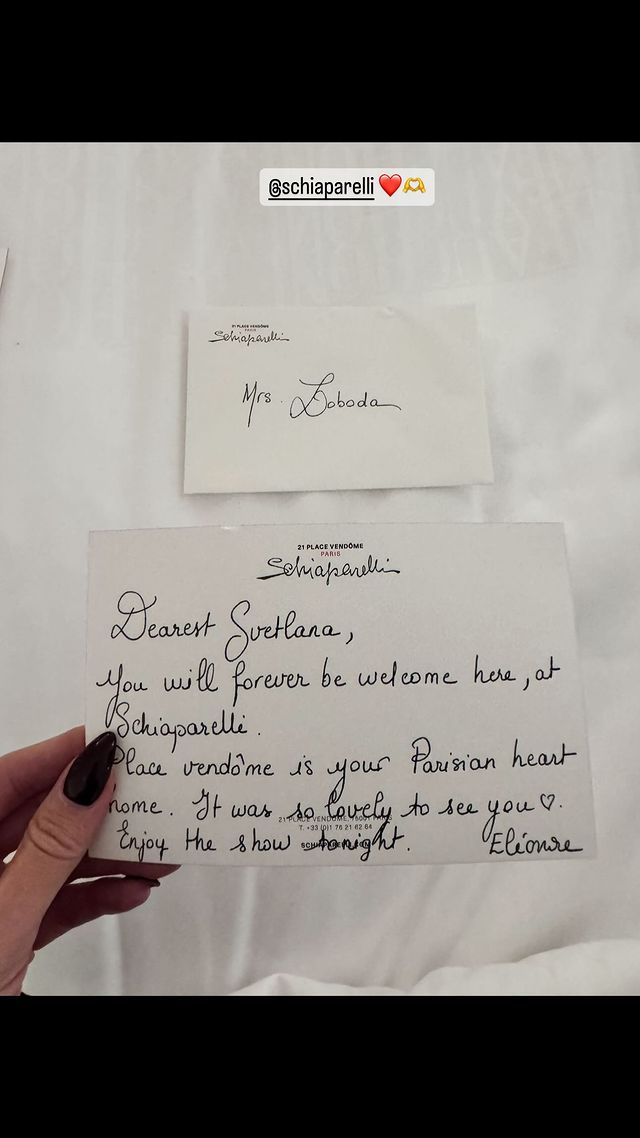 @schiaparelli ❤️🫶
21 PLACE VENDÔME
PARIS
Schiaparelli
Mrs. Loboda
21 PLACE VENDÔME
PARIS
Schiaparelli
Dearest Svetlana,
You will forever be welcome here, at
Schiaparelli.
Place vendôme is your Parisian heart
home. It was so lovely to see you ♡.
21 PLACE VENDÔME, 75001 PARIS
T. +33 (0)1 76 21 62 64
Enjoy the show tonight. Eléonore
SCHIAPARELLI.COM